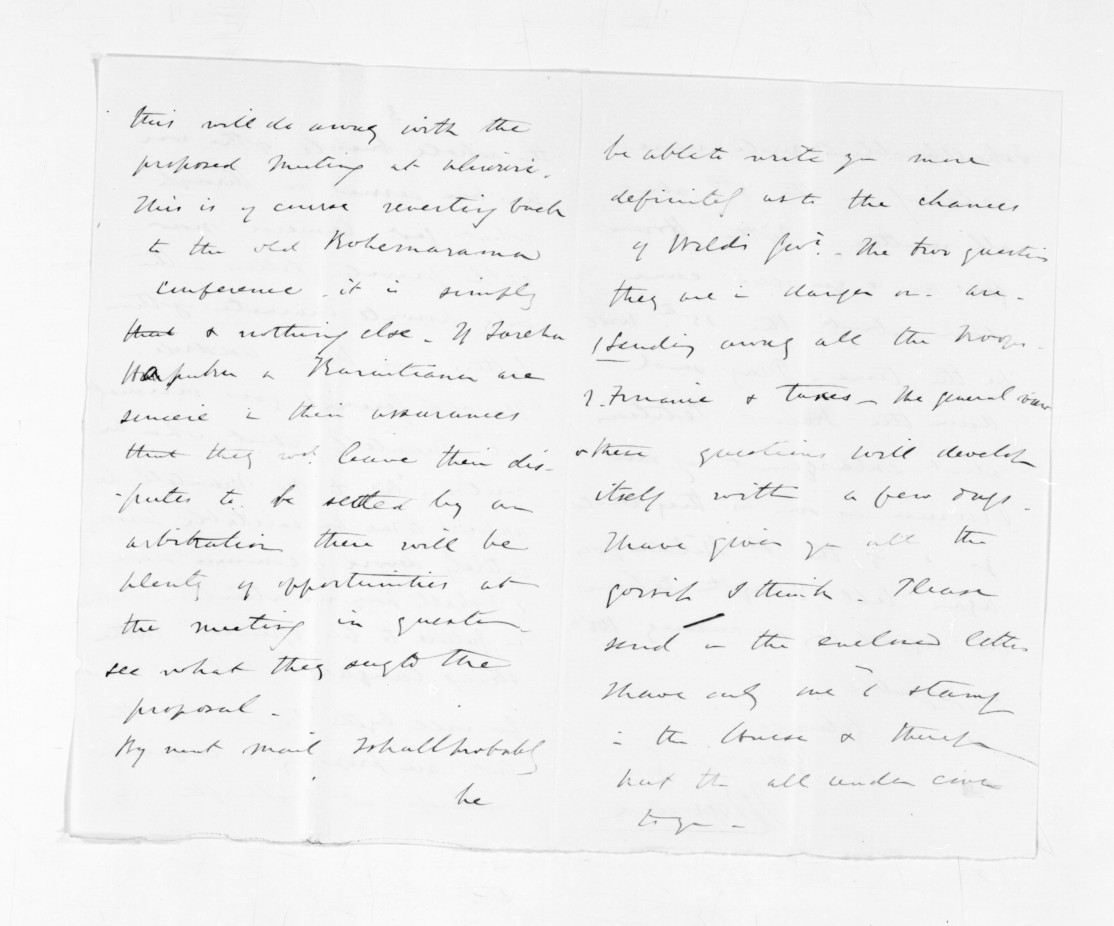 this will do away with the
proposed Meeting at
This is of course reverting back
to the old Kohemarama
conference. it is simply
that & nothing else. If Tareha
Hapuku & Karaitiana are
sincere in their assurances
that they wd. leave their dis-
-putes to be settled by an
arbitration there will be
plenty of opportunities at
the meeting in question
see what they say to the
proposal.
By next mail I shall probably
be
be able to write you more
definitely as to the chances
of Weld's Govt. - The two questions
they are in danger on - are -
1 Sending away all the Troops.
2. Finance & taxes - The general view
these questions will develop
itself with a few days.
I have given you all the
gossip I think - Please
send on the enclosed letters
I have only one stamp
in the House & therefore
put them all under cover
to you -